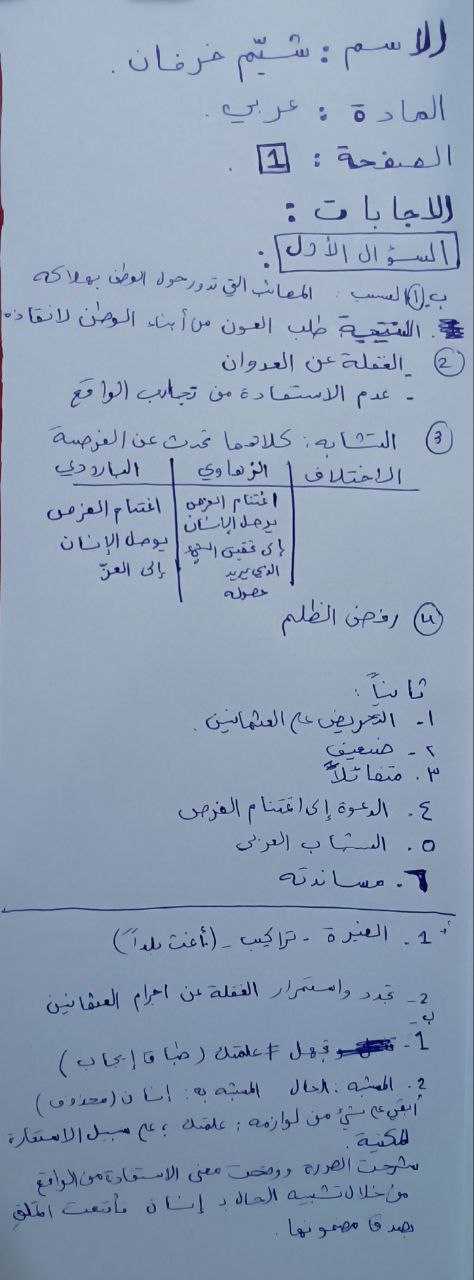 الاسم : شيّم خرفان .
المادة : عربي .
الصفحة : 1 .
الاجابات :
السؤال الأول :
ب) 1 السبب : المصائب التي تدور حول الوطن بهلاكه
. النتيجة طلب العون من أبناء الوطن لانقاذه
2 - الغفلة عن العدوان
- عدم الاستفادة من تجارب الواقع
3 التشابه : كلاهما تحدث عن الفرصة
الاختلاف | الزهاوي | البارودي
اغتنام الفرص | اغتنام الفرص
يوصل الإنسان | يوصل الإنسان
إلى تحقيق | إلى العزّ
الذي يريد
حصوله
4 رفض الظلم
ثانياً :
١- التحريض على العثمانيين .
٢- ضعيف
٣. متفائلاً
٤. الدعوة إلى اغتنام الفرص
٥. الشباب العربي
٦. مساندته
1. الغيرة - تراكيب - (أغث بلداً)
2- تجدد واستمرار الغفلة عن اجرام العثمانين
ب-
1- تجهل ≠ علمتك (طباق إيجاب)
2. المشبه : الحال المشبه به : إنسان (محذوف)
أبقى على شيء من لوازمه : علمتك ، على سبيل الاستعارة
المكنية .
شرحت الصورة ووضحت معنى الاستفادة من الواقع
من خلال تشبيه الحال بـ إنسان فأقنعت المتلقي
بصدق مضمونها .